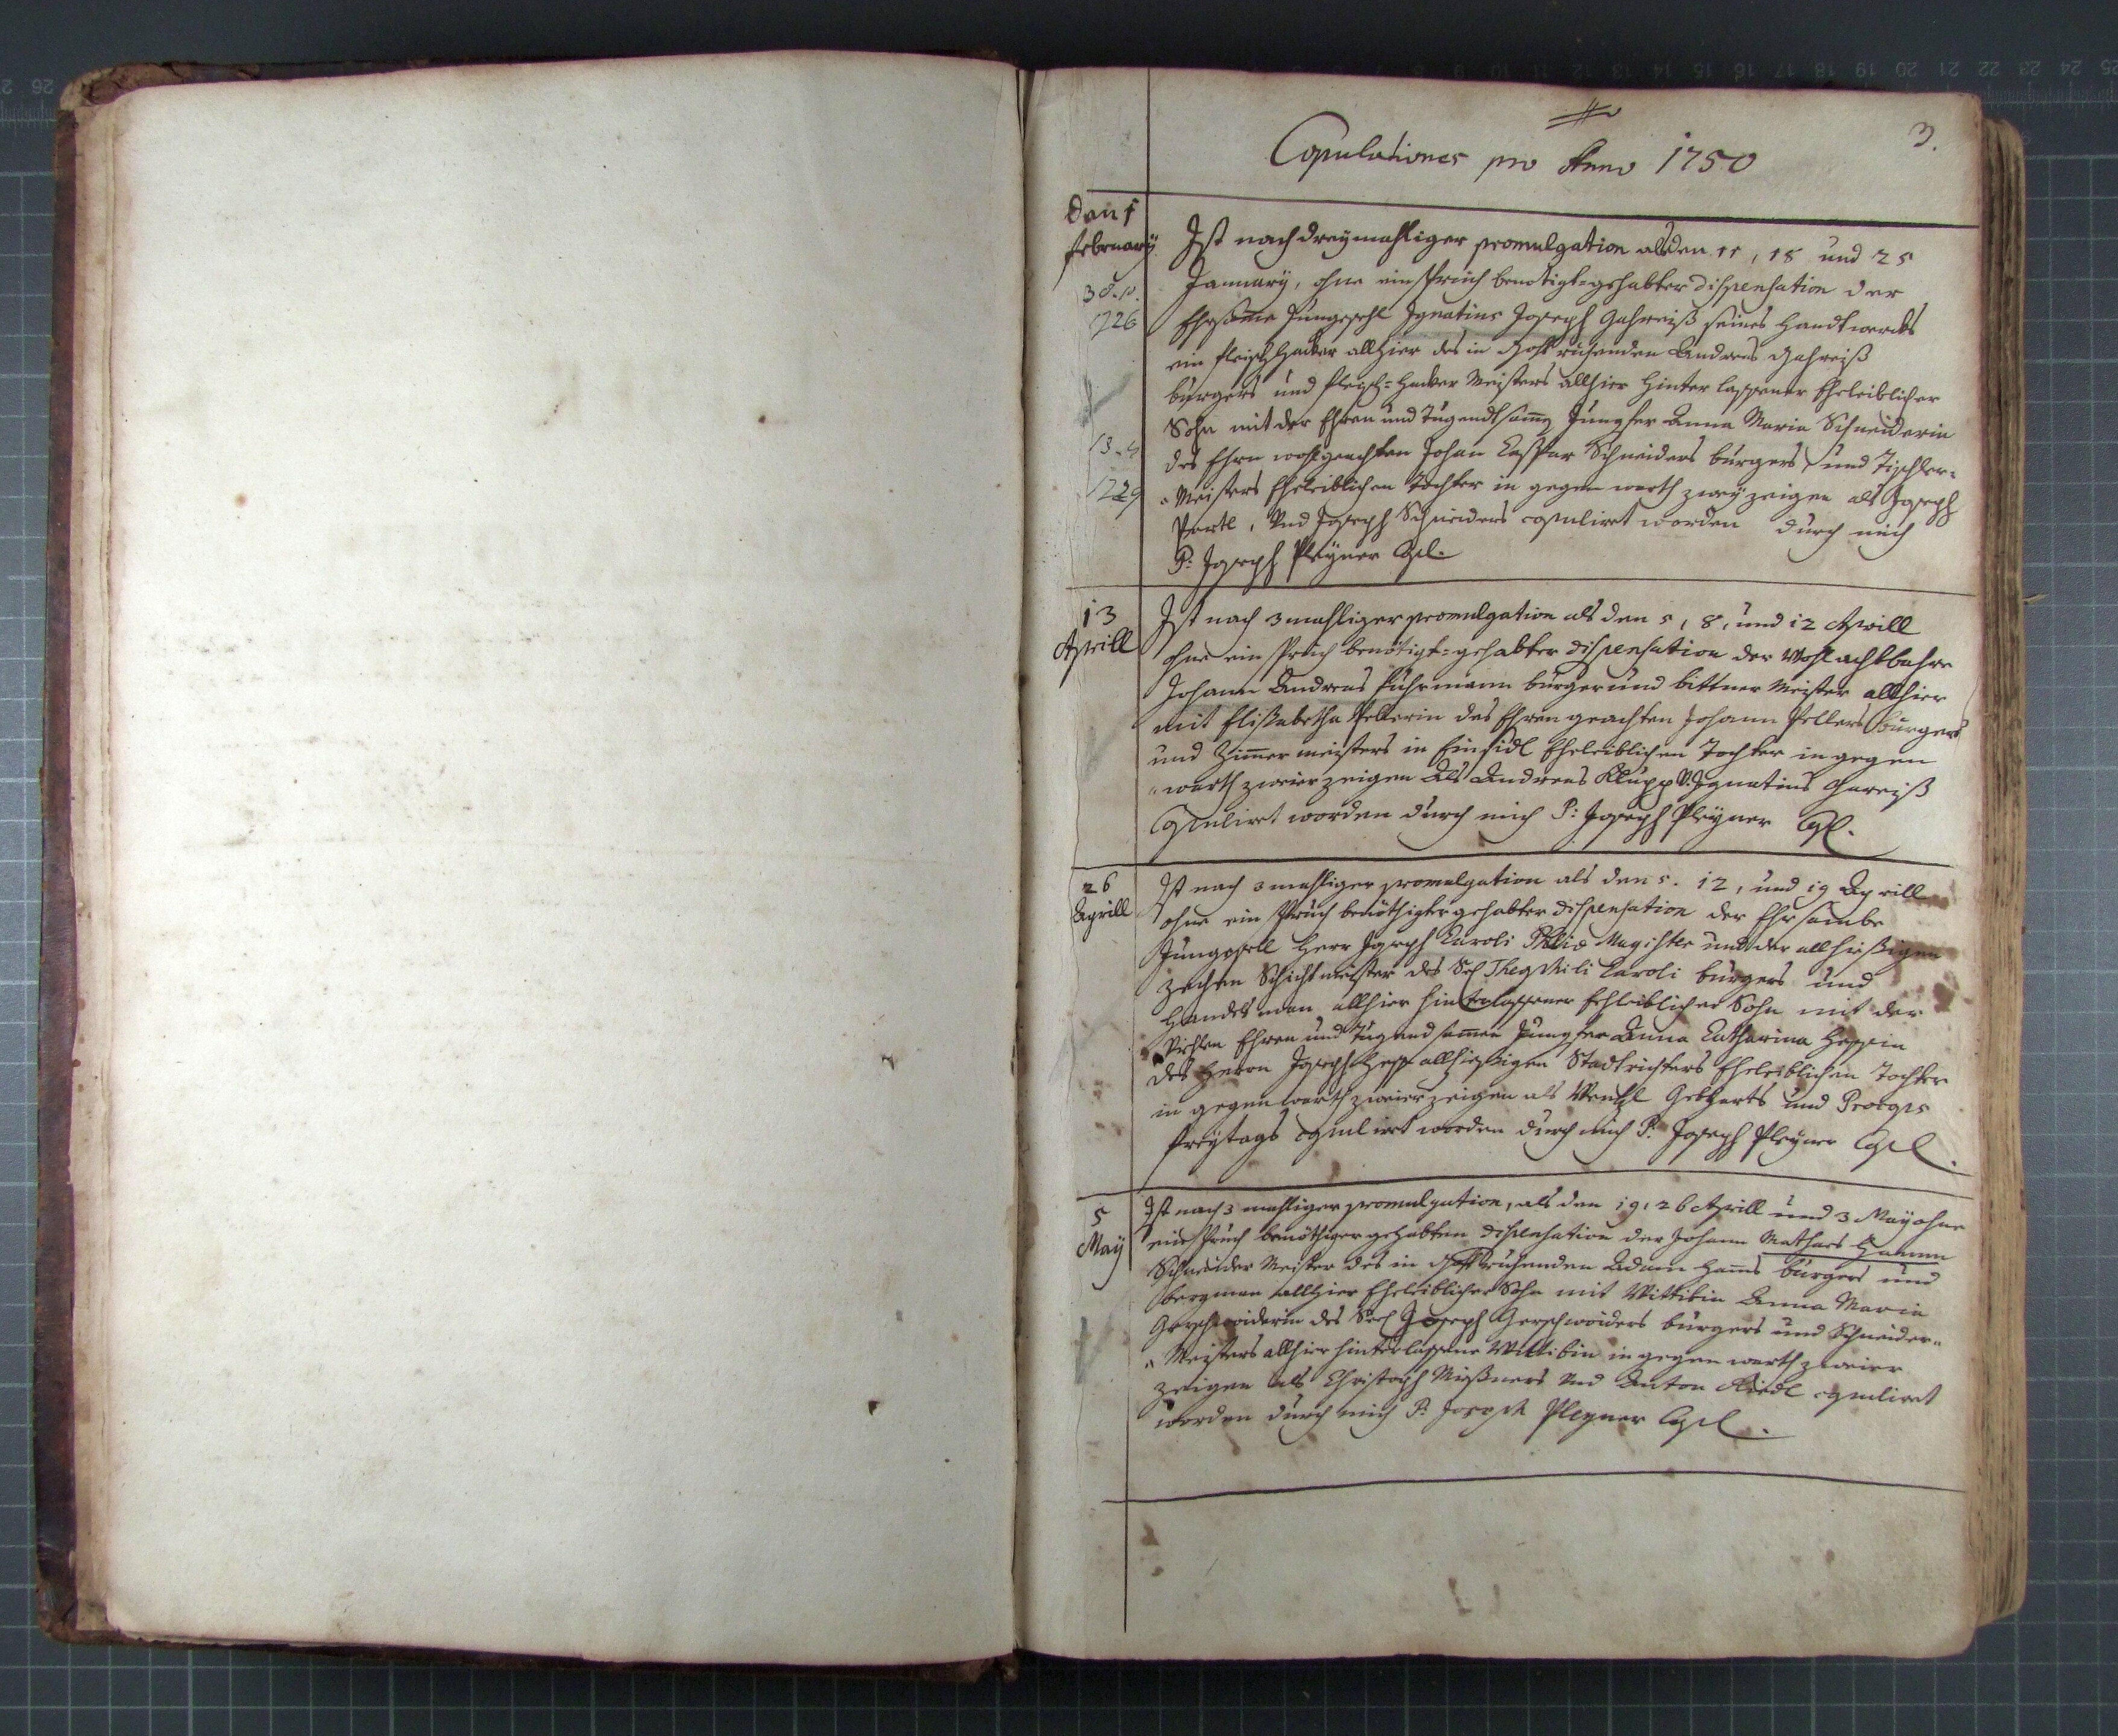 3.
Copulationes pro Anno 1750
Den 1
February
1726
1729
Ist nach dreymahliger promulgation als den 11, 18 und 25
January, ohne einspruch benötigt-gehabter dispensation der
Ehrsame Junggesehl Ignatius Joseph Gahreiß seines Handtwercks
ein fleischHacker allhier des in Gott ruhenden Andreas Gahreiß
burgers und fleisch-Hacker Meisters allhier hinterlassener Eheleiblicher
Sohn mit der Ehren und Tugendsame Jungfer Anna Maria Schneiderin
des Ehren wohlgeachten Johan Caspar Schneiders burgers und Tischler-
Meisters Eheleiblichen Tochter in gegenwarth zweÿ zeigen als Joseph
und Joseph Schneiders copuliret worden durch mich
P: Joseph Pleÿner Cpl.
13
Aprill
Ist nach 3 mahliger promulgation als den 5, 8, und 12 Aprill
ohne einspruch benötigt-gehabter dispensation der Wohlachtbahre
Johann Andreas Fuhrmann burger und bittner Meister allhier
mit Elisabetha Pellerin des Ehrengeachten Johann Pellers burgers
und Zimmermeisters in Einsidl Eheleiblichen Tochter in gegen
warth zweier zeigen Als Andreas Klupp V. Ignatius Gareiß
Copuliret worden durch mich P: Joseph Pleyner Cpl.
26
Aprill
Ist nach 3 mahliger promulgation als den 5. 12, und 19 Aprill
ohne einspruch benöthigter gehabter dispensation der Ehrsambe
Junggesell Herr Joseph Caroli Magister und der allhießigen
zechen Schichtmeister des Seel Caroli burgers und
Handelsman allhier hinterlassener Eheleiblicher Sohn mit der
Ehren und Tugendsamen Jungfer Anna Catharina Heppin
des Herrn Joseph Hepp allhießigen Stadtrichters Eheleiblichen Tochter
in gegenwarth zweier zeigen als Wentzl Gebharts und
freÿtags copuliert worden durch mich P: Joseph Pleyner Cpl.
5
May
Ist nach 3 mahliger promulgation, als den 19, 26 Aprill und 3 May ohne
einspruch benöthiger gehabten dispensation der Johann Mathaes Hamm
Schneider Meister des in Gott ruhenden Adam Hams burgers und
bergman allhier Eheleiblicher Sohn mit Wittibin Anna Maria
des Seel Joseph burgers und Schneider
Meisters allhier hinterlassene Wittibin in gegenwarth zweier
zeigen als Christoph Meßners und Anton Riedl copuliret
worden durch mich P: Joseph Pleyner Cpl.